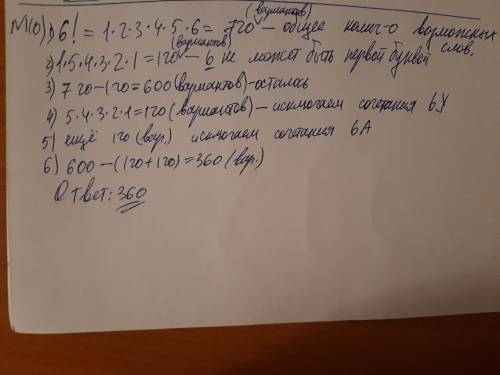 М(О) 1) 6! = 1·2·3·4·5·6 = 720 (вариантов) – общее колич-о возможных слов.
2) 1·5·4·3·2·1 = 120 (вариантов) – б не может быть первой буквой
3) 720 – 120 = 600 (вариантов) – осталось
4) 5·4·3·2·1 = 120 (вариантов) – исключаем сочетания бУ
5) ещё 120 (вар.) исключаем сочетания бА
6) 600 – (120 + 120) = 360 (вар.)
Ответ: 360